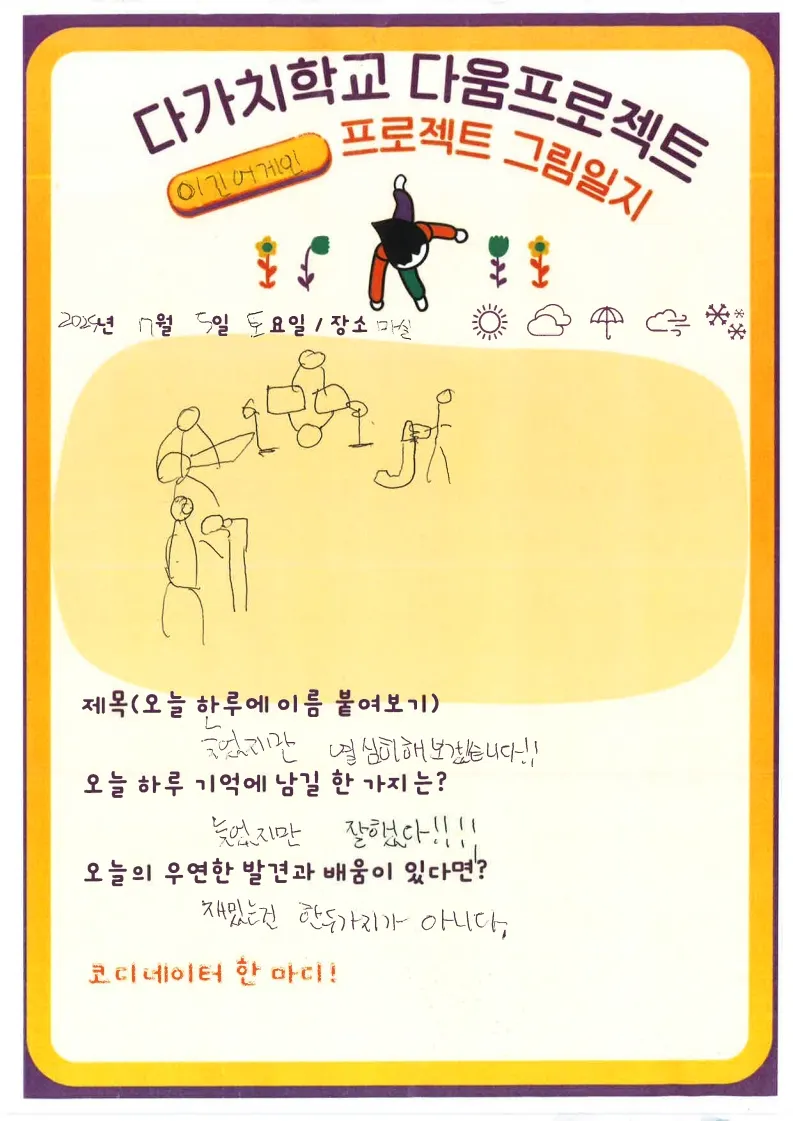 다가치학교 다움프로젝트
프로젝트 그림일지
이긴어게인
2025년 7월 5일 토요일 / 장소 마실
제목(오늘 하루에 이름 붙여보기)
늦었지만 열심히해보겠습니다!!
오늘 하루 기억에 남길 한 가지는?
늦었지만 잘했다!!!!
오늘의 우연한 발견과 배움이 있다면?
재밌는건 한두가지가 아니다,
코디네이터 한 마디!